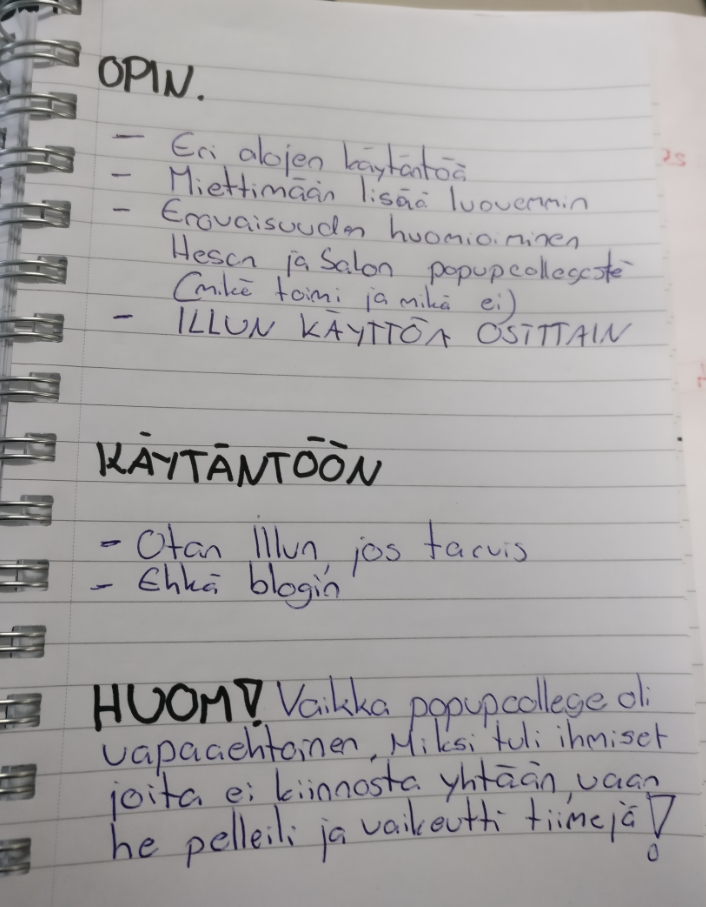 OPIN.
- Eri alojen käytäntöä
- Miettimään lisää luovemmin
- Erovaisuuden huomioiminen
Hesan ja Salon popupcollegestä
(mikä toimi ja mikä ei)
- ILLUN KÄYTTÖÄ OSITTAIN
KÄYTÄNTÖÖN
- Otan Illun, jos tarvis
- Ehkä blogin
HUOM! Vaikka popupcollege oli
vapaaehtoinen, Miksi tuli ihmiset
joita ei kiinnosta yhtään, vaan
he pelleili ja vaikeutti tiimejä!
25